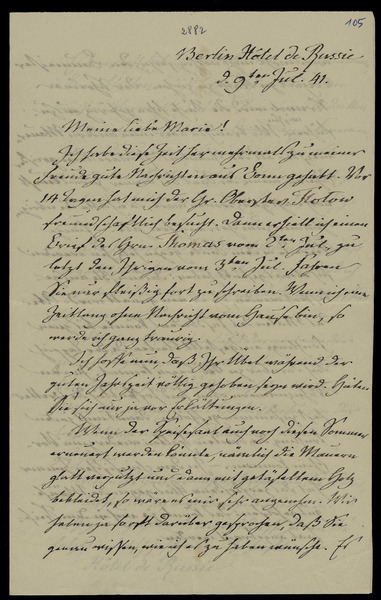 2882
105
Berlin Hôtel de Russie
d. 9ten Jul. 41.
Meine liebe Marie!
Ich habe diese Zeit her mehrmals zu meiner
Freude gute Nachrichten aus Bonn gehabt. Vor
14 Tagen hat mich der Hr. Oberster Flotow
freundschaftlich besucht. Dann erhielt ich einen
Brief des Hrn. Thomas vom 2ten Jul. zu
letzt den Ihrigen vom 3ten Jul. Fahren
Sie nur fleißig fort zu schreiben. Wenn ich eine
Zeitlang ohne Nachricht vom Hause bin, so
werde ich ganz traurig.
Ich hoffe nun, daß Ihr Übel während der
guten Jahrszeit völlig gehoben seyn wird. Hüten
Sie sich nur ja vor Erkältungen.
Wenn der Speisesaal auch noch diesen Sommer
erneuert werden könnte, nämlich die Mauern
glatt verputzt und dann mit getäfeltem Holz
bekleidet, so wäre es mir sehr angenehm. Wir
haben ja so oft darüber gesprochen, daß Sie
genau wissen, wie ich es zu haben wünsche. Es